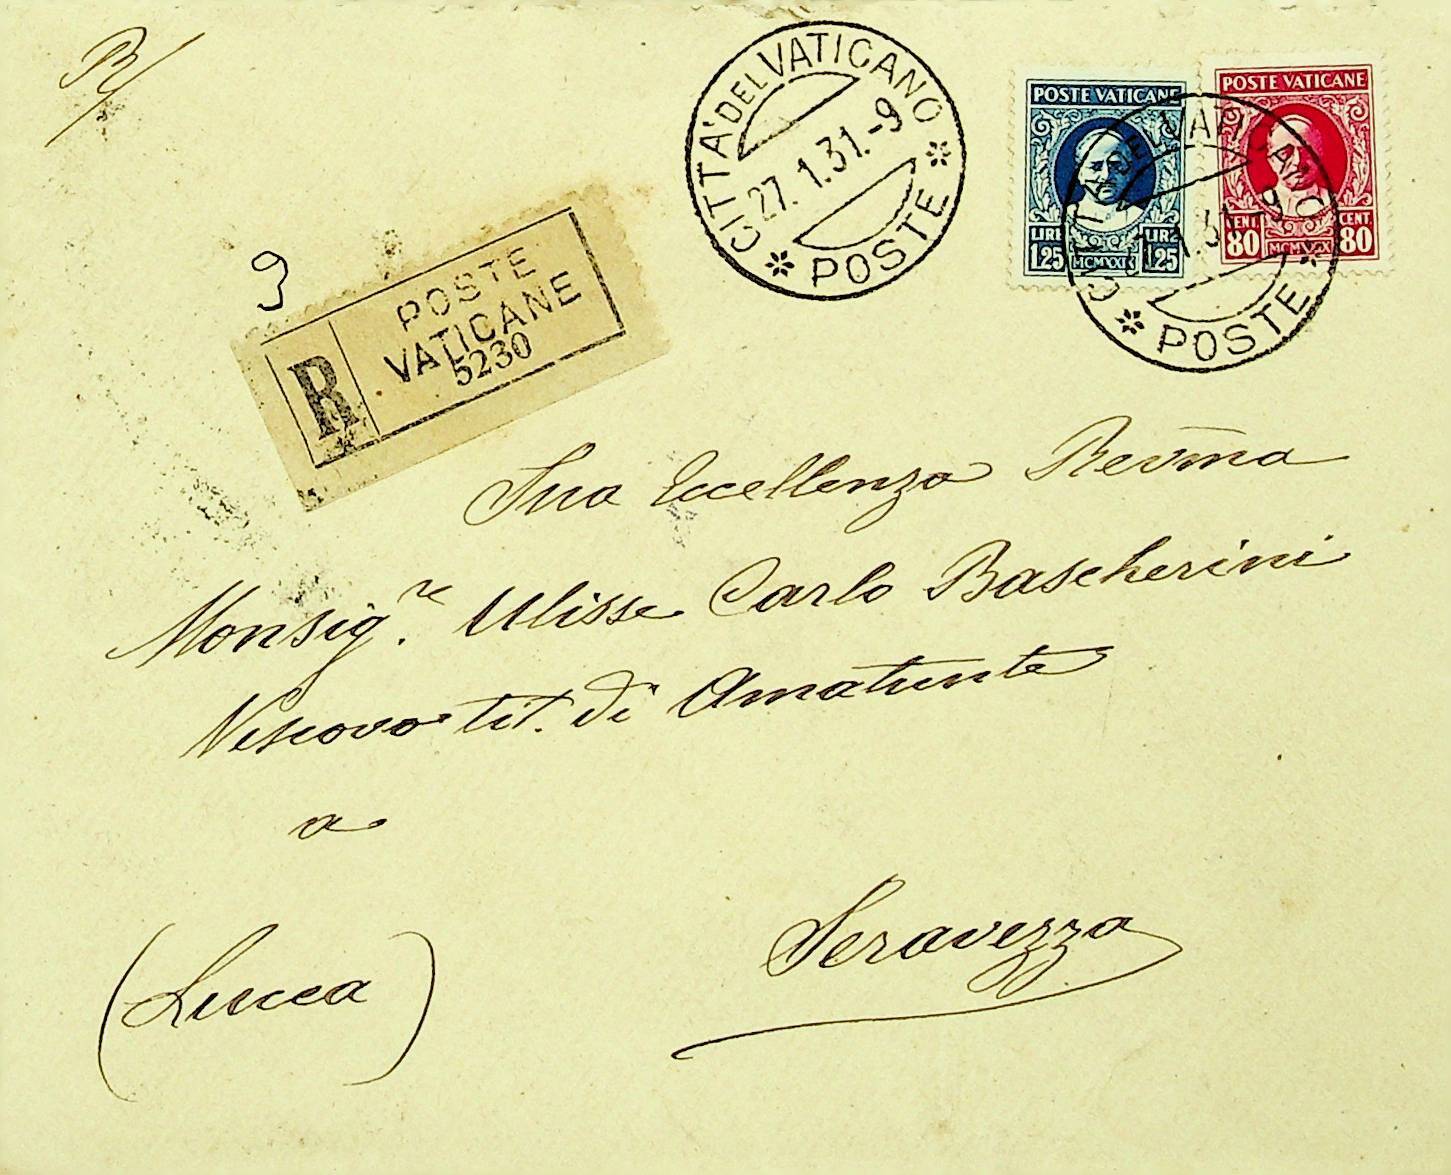 R/
CITTÀ DEL VATICANO
27.1.31.-9
POSTE
POSTE VATICANE
LIRE LIRE
1,25 MCMXXIX 1,25
POSTE VATICANE
CENT. CENT.
80 MCMXXIX 80
CITTÀ DEL VATICANO
POSTE
9
R
POSTE
VATICANE
5230
Sua Eccellenza Revma
Monsigre. Ulisse Carlo Bascherini
Vescovo tit. di Amatunte
a
Seravezza
(Lucca)